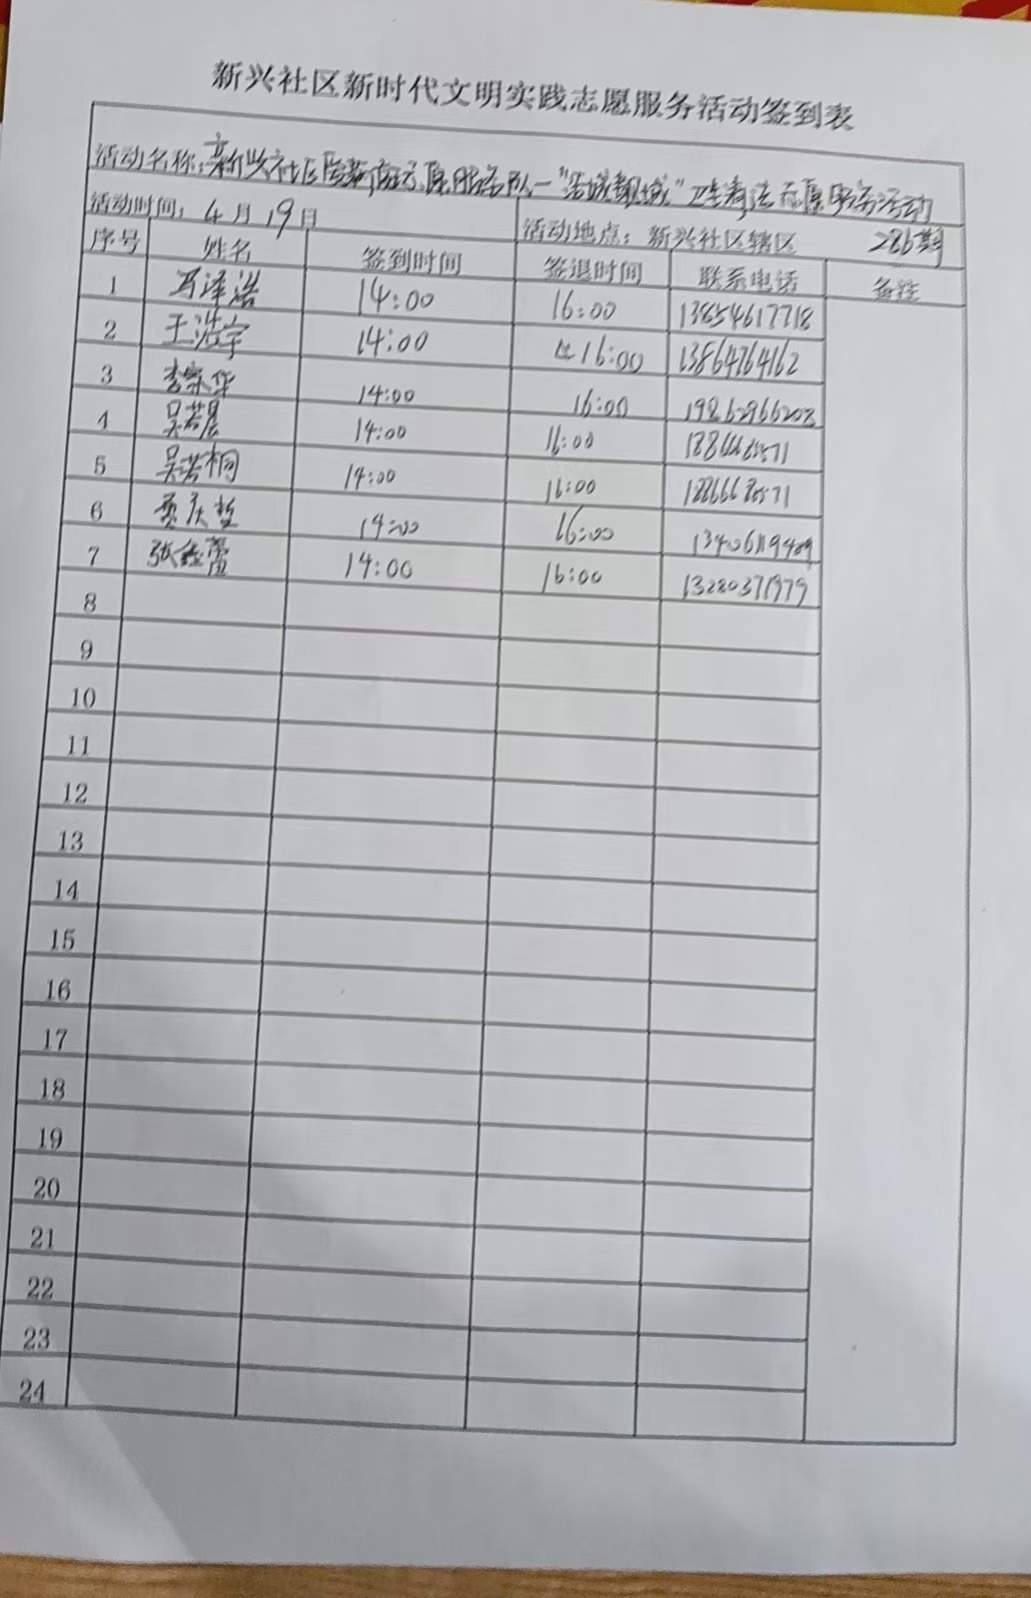 新兴社区新时代文明实践志愿服务活动签到表
活动名称:新兴社区 志愿服务队—" "卫生清洁志愿服务活动
活动时间:4月19日 活动地点:新兴社区辖区 286期
序号 姓名 签到时间 签退时间 联系电话 备注
1 马泽浩 14:00 16:00 13854617718
2 王浩宇 14:00 16:00 13864764162
3 李家华 14:00 16:00
4 吴若晨 14:00 16:00
5 吴若桐 14:00 16:00
6 14:00 16:00
7 张鑫蕾 14:00 16:00
8
9
10
11
12
13
14
15
16
17
18
19
20
21
22
23
24